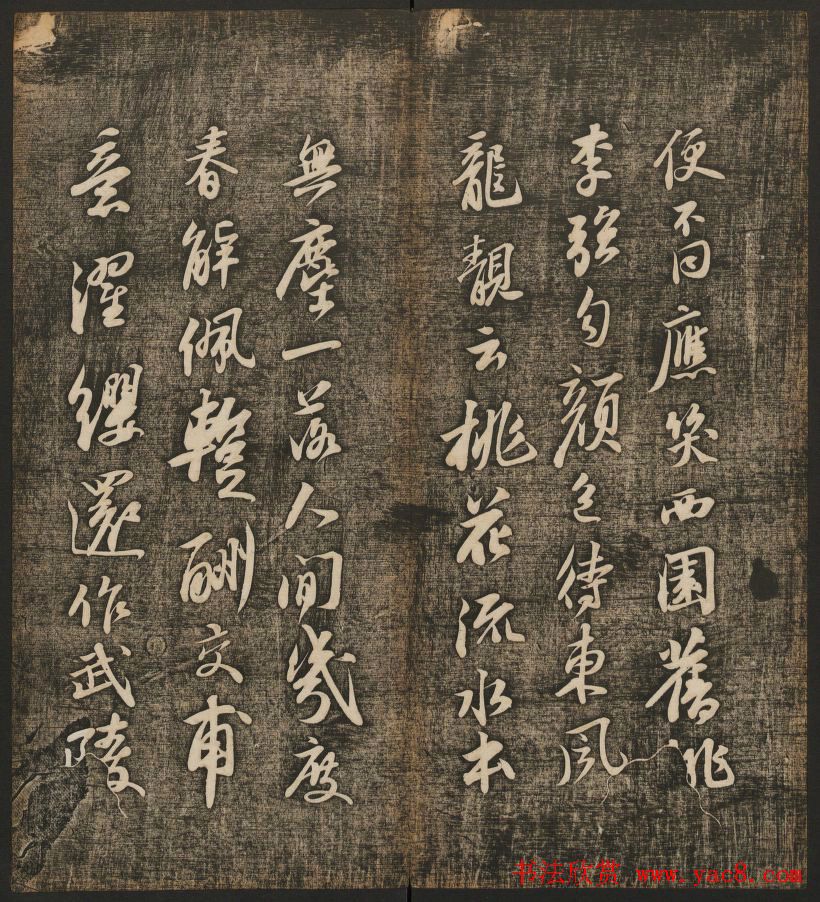 便不同應笑西園舊桃
李強勻顏色待東風
龍靚云桃花流水本
無塵一落人間幾度
春解佩蹔酬交甫
意濯纓還作武陵
书法欣赏 www.yac8.com